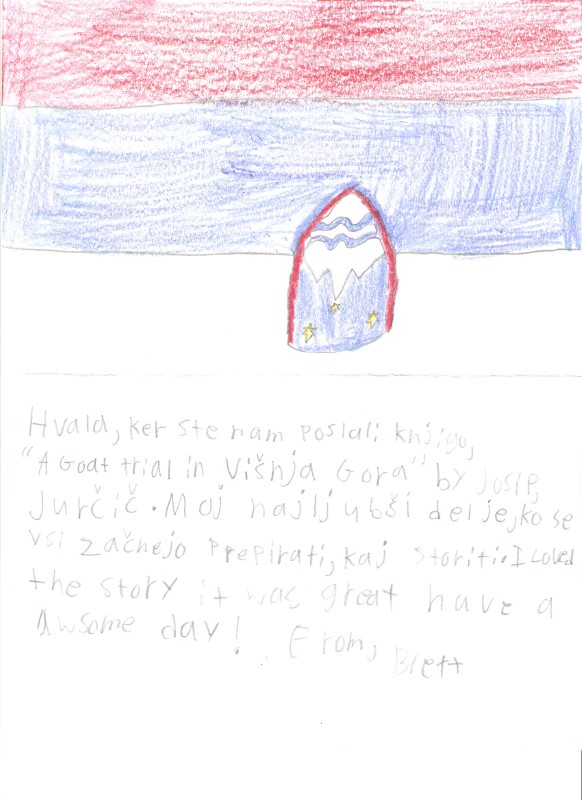 Hvala, ker ste nam poslali knjigo,
"A Goat trial in Višnja Gora" by Josip,
Jurčič. Moj najljubši del je, ko se
vsi začnejo prepirati, kaj storiti. I Loved
the story it was great have a
Awsome day! From, Brett